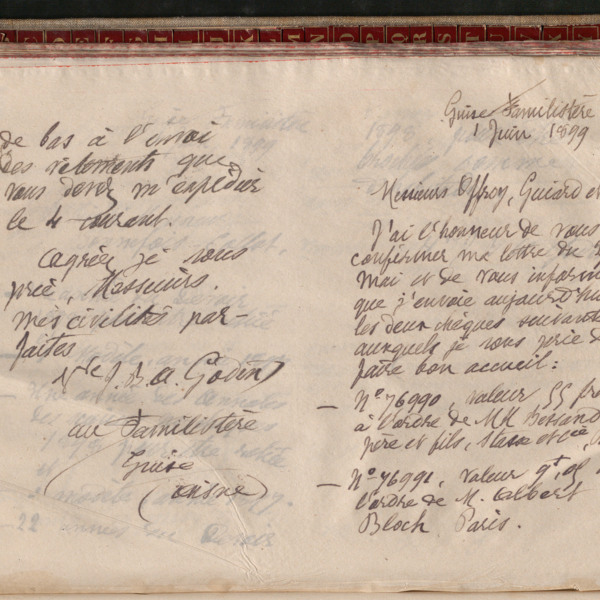 de bas à l'envoi
des vêtements que
vous devez m'expédier
le 4 courant.
agréez je vous
prie Messieurs.
mes civilités par-
faites
Vve J. B. A. Godin
au Familistère
Guise
(aisne)
Guise Familistère
1 Juin 1899
Messieurs Offroy, Guiard et
J'ai l'honneur de vous
confirmer ma lettre du
Mai et de vous inform
que j'envoie aujourd'hui
les deux chèques suivants
auxquels je vous prie de
faire bon accueil :
— N° 76990, valeur 55 fr
à l'ordre de MM
père et fils,
— N° 76991, valeur
l'ordre de M. Albert
Bloch Paris.